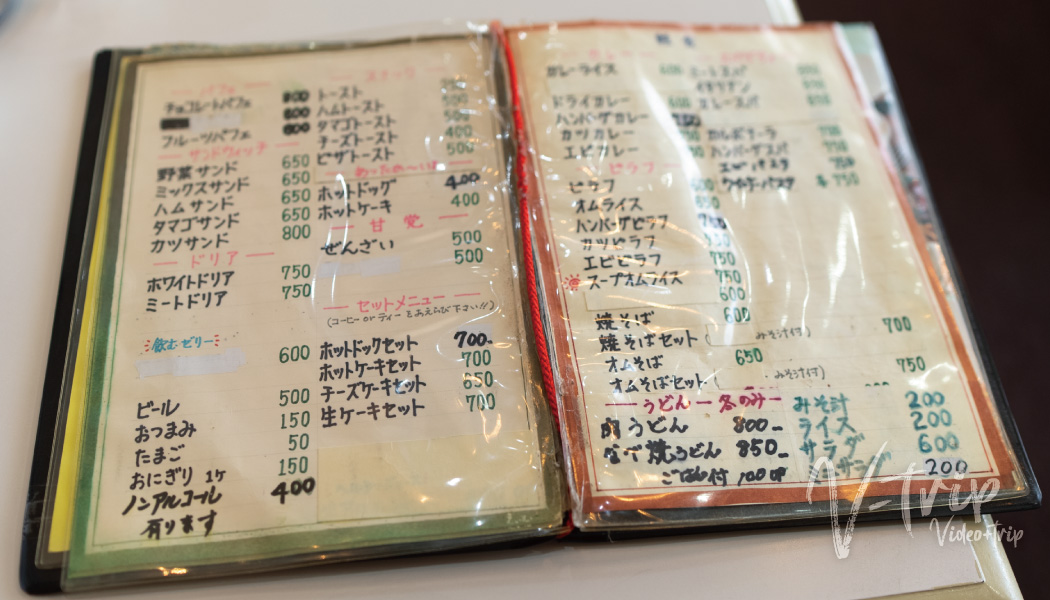 パフェ
チョコレートパフェ 800
600
フルーツパフェ 600
サンドウィッチ
野菜サンド 650
ミックスサンド 650
ハムサンド 650
タマゴサンド 650
カツサンド 800
ドリア
ホワイトドリア 750
ミートドリア 750
飲むゼリー
600
ビール 500
おつまみ 150
たまご 50
おにぎり 1ヶ 150
ノンアルコール 400
有ります
スナック
トースト
ハムトースト 500
タマゴトースト 500
チーズトースト 400
ピザトースト 500
ホットドッグ 400
ホットケーキ 400
甘党
ぜんざい 500
500
セットメニュー
(コーヒー or ティー をお選び下さい!!)
ホットドックセット 700
ホットケーキセット 700
チーズケーキセット 650
生ケーキセット 700
カレーライス
ドライカレー
ハンバーグカレー
カツカレー
エビカレー
ピラフ
ピラフ
オムライス 650
ハンバーグピラフ
カツピラフ
エビピラフ 750
スープオムライス 750
600
焼そば 600
焼そばセット ( みそ汁付) 700
オムそば 650
オムそばセット ( みそ汁付) 750
うどん ー 冬のみー
肉うどん 800
なべ焼うどん 850
ごはん付 100円
ミートスパ
イタリアン
カルボナーラ
ハンバーグスパ
エビパスタ 750
750
みそ汁 200
ライス 200
サラダ 600
200
V-Trip
Video+trip